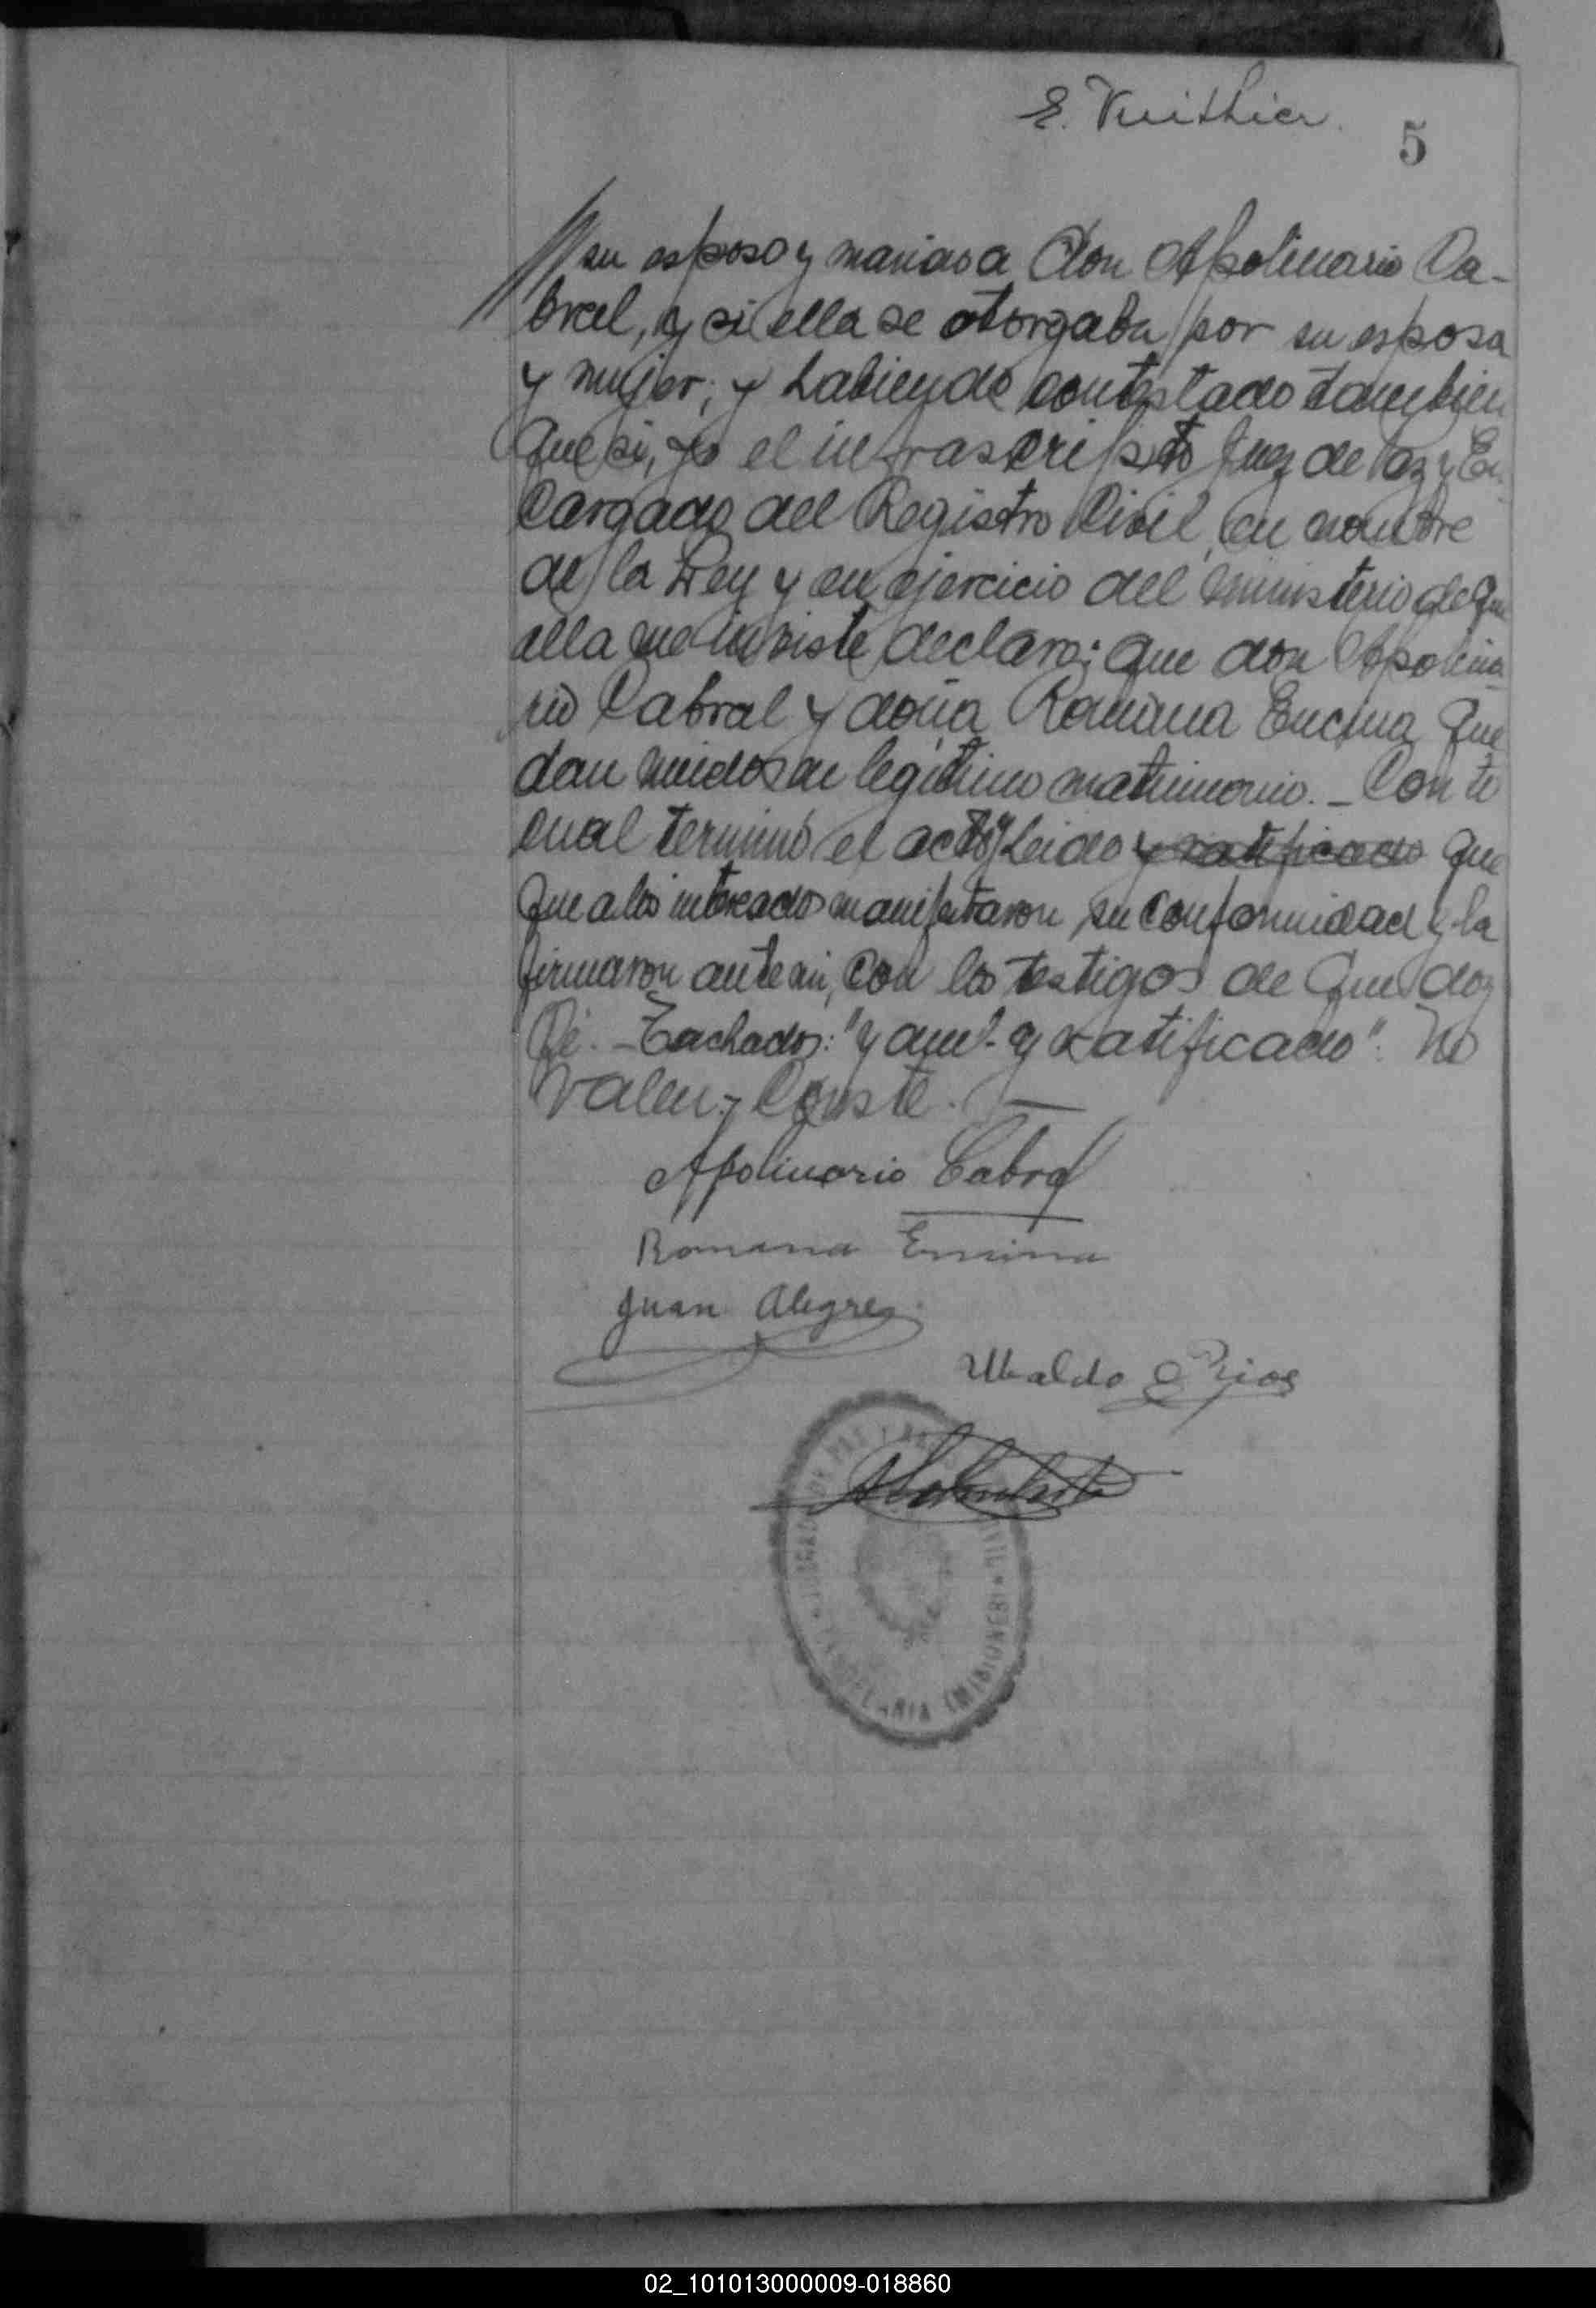 E. Vuithier.
5
su esposo y marido a Don Apolinario Ca-
bral, y si ella se otorgaba por su esposa
y mujer; y habiendo contestado tambien
que si, yo el infrascripto Juez de Paz y En-
cargado del Registro Civil, en nombre
de la Ley y en ejercicio del ministerio de que
ella me inviste declaro: que don Apolina-
rio Cabral y doña Romana Encina que
dan unidos en legitimo matrimonio. - Con lo
cual terminó el acto y Leido y ratificado que
que a los interesados manifestaron su conformidad y la
firmaron ante mi, con los testigos de que doy
Fé. - Tachados: "y ratificado". No
valen. - Conste. -
Apolinario Cabral
Romana Encina
Juan Alegre
Ubaldo Rios
JUZGADO DE PAZ Y
CIVIL
CANDELARIA (MISIONES)
02_101013000009-018860